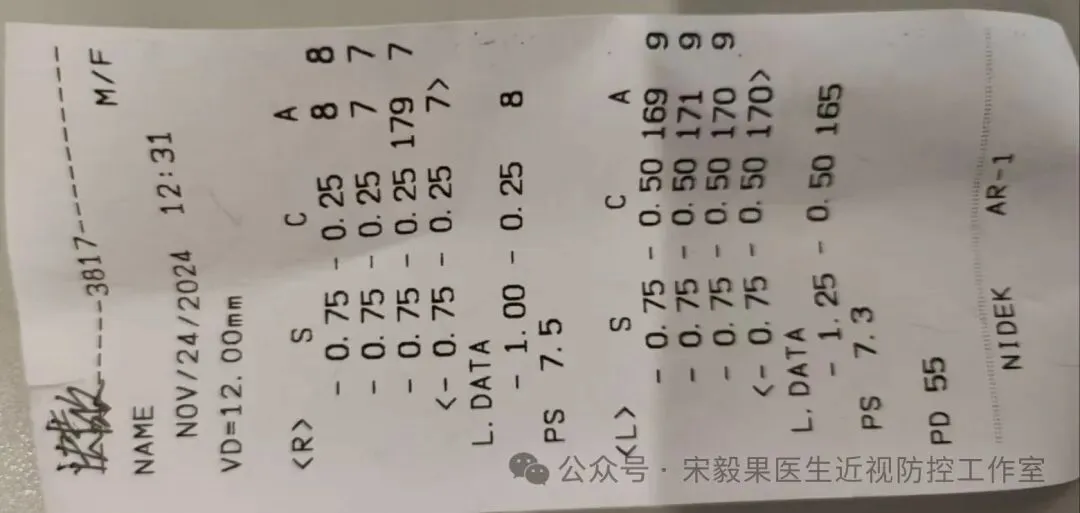 -----3817-----------
NAME M/F
NOV/24/2024 12:31
VD=12.00mm
<R> S C A
- 0.75 - 0.25 8 8
- 0.75 - 0.25 7 7
- 0.75 - 0.25 179 7
<- 0.75 - 0.25 7>
L.DATA
- 1.00 - 0.25 8
PS 7.5
<L> S C A
- 0.75 - 0.50 169 9
- 0.75 - 0.50 171 9
- 0.75 - 0.50 170 9
<- 0.75 - 0.50 170>
L.DATA
- 1.25 - 0.50 165
PS 7.3
PD 55
NIDEK AR-1
公众号 · 宋毅果医生近视防控工作室